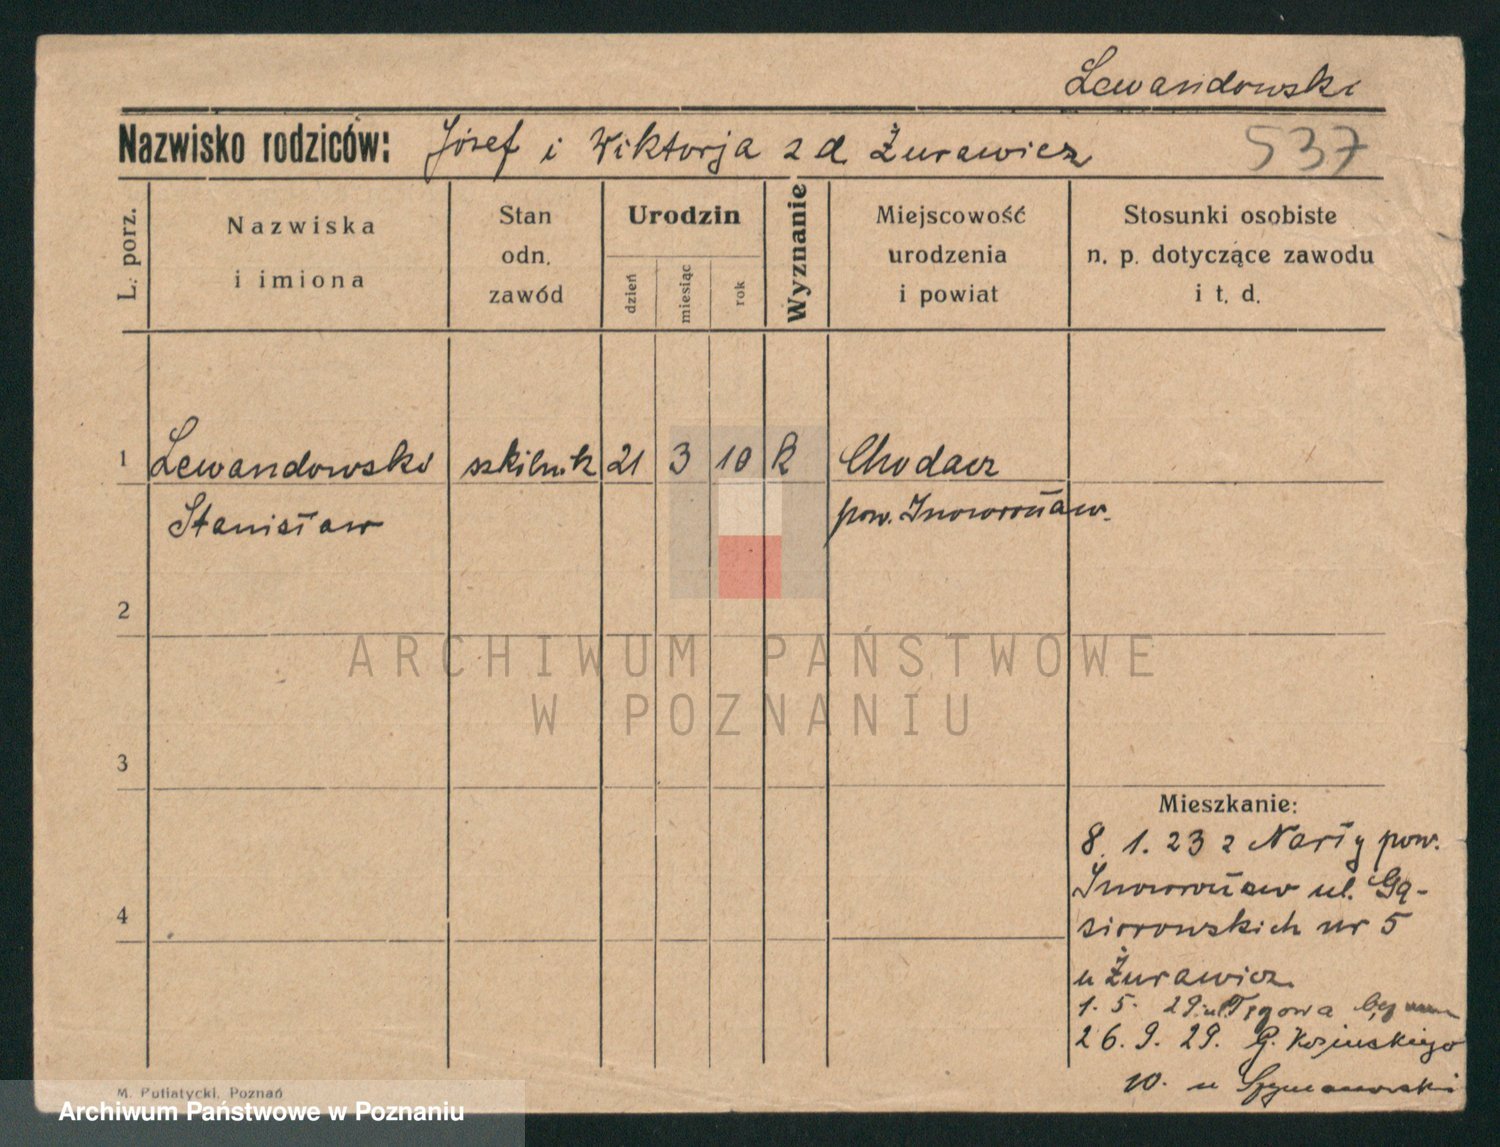 Lewandowski
Nazwisko rodziców: Józef i Wiktorja z d Żurawicz 537
L. porz.
Nazwiska
i imiona
Stan
odn.
zawód
Urodzin
dzień
miesiąc
rok
Wyznanie
Miejscowość
urodzenia
i powiat
Stosunki osobiste
n. p. dotyczące zawodu
i t. d.
1 Lewandowski szkilnik 21 3 10 k Chodacz
Stanisław pow. Inowrocław.
2
ARCHIWUM PAŃSTWOWE
W POZNANIU
3
Mieszkanie:
8. 1. 23 z Narty pow.
Inowrocław ul. Gą-
siorowskich nr 5
4
u Żurawicz.
1. 5. 29
26. 9. 29. G. Kosinskiego
10. u Szymanowski
M. Putiatycki, Poznań
Archiwum Państwowe w Poznaniu